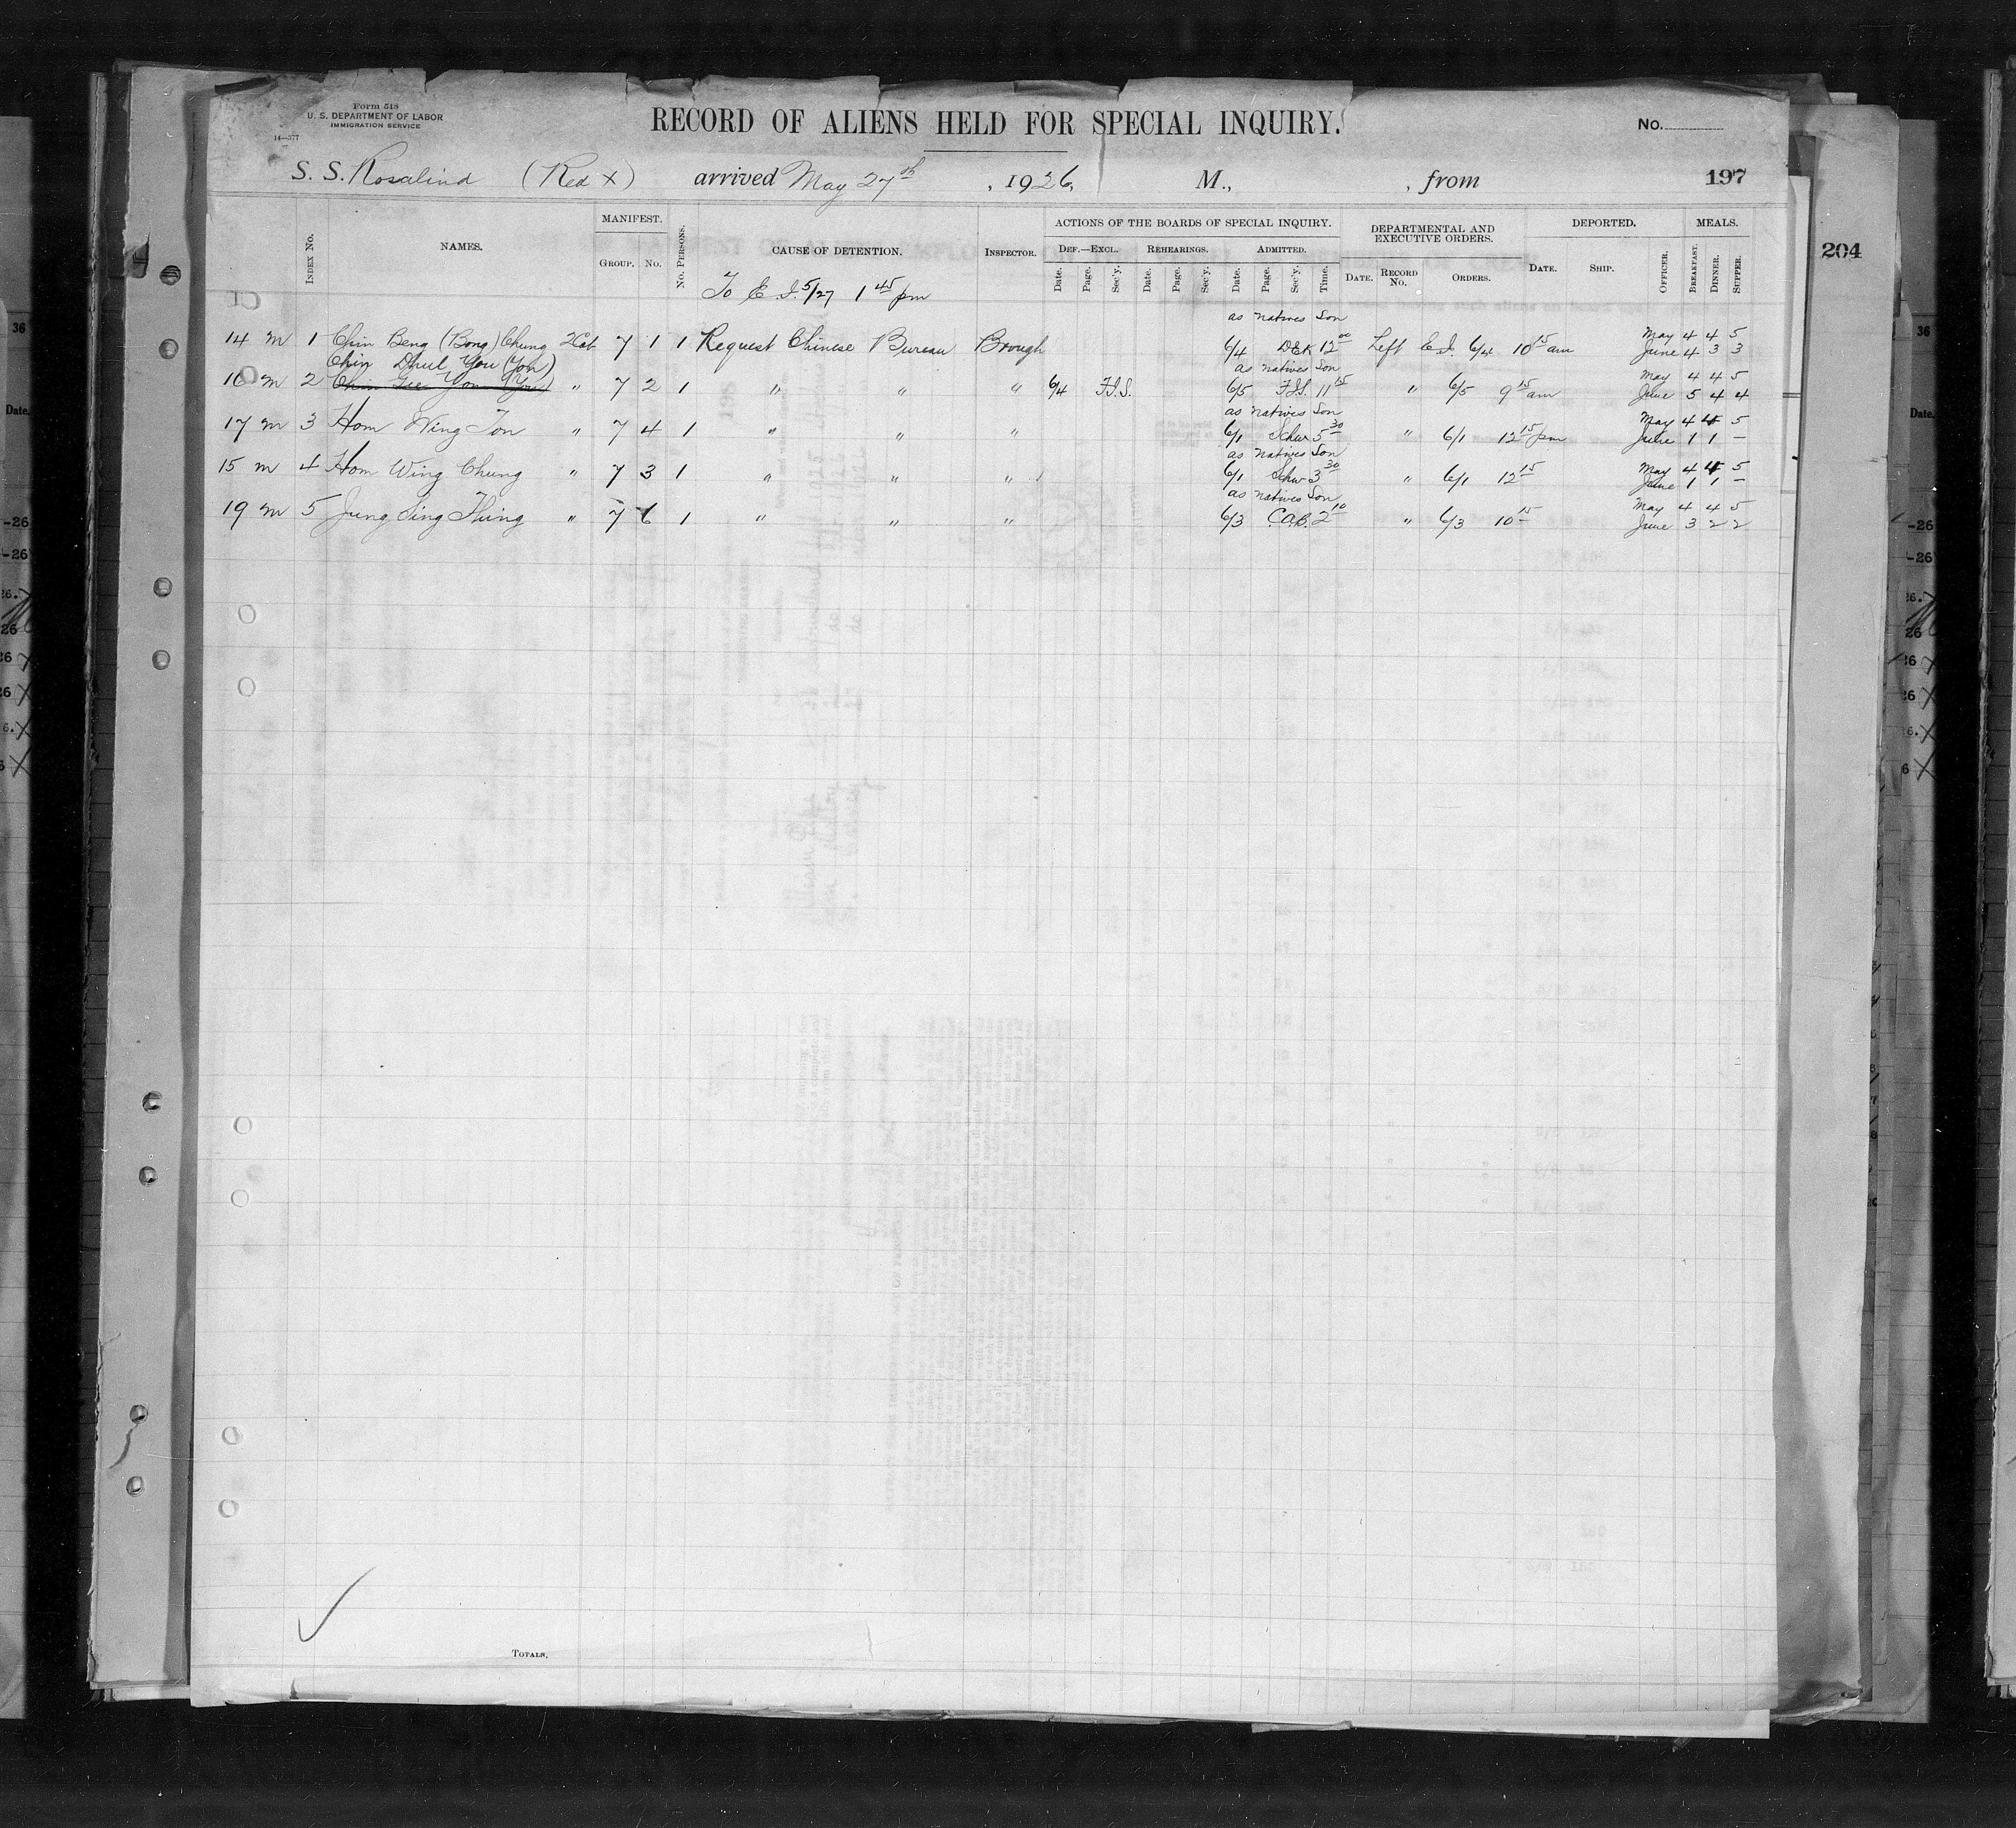 Form 518
U. S. DEPARTMENT OF LABOR
IMMIGRATION SERVICE
14—377
RECORD OF ALIENS HELD FOR SPECIAL INQUIRY.
No.
S. S. Rosalind (Red X) arrived May 27th, 1926, M., , from 197
204
INDEX No. NAMES. MANIFEST. GROUP. No. No. PERSONS. CAUSE OF DETENTION. INSPECTOR. ACTIONS OF THE BOARDS OF SPECIAL INQUIRY. DEPARTMENTAL AND EXECUTIVE ORDERS. DEPORTED. MEALS.
DEF.—EXCL. REHEARINGS. ADMITTED.
Date. Page. Sec'y. Date. Page. Sec'y. Date. Page. Sec'y. Time. DATE. RECORD No. ORDERS. DATE. SHIP. OFFICER. BREAKFAST. DINNER. SUPPER.
To E. I. 5/27 1 45 pm
as natives Son
14 m 1 Chin Beng (Bong) Chung 2Cab 7 1 1 Request Chinese Bureau Brough 6/4 DEK 12 00 Left E. I. 6/4 10 15 am May 4 4 5
June 4 3 3
Chin Dhul You (Yon)
as natives Son
16 m 2 Chin Gee Yon (You) " 7 2 1 " " " 6/4 F.I.S. 6/5 F.I.S. 11 15 " 6/5 9 15 am May 4 4 5
June 5 4 4
as natives Son
17 m 3 Hom Wing Ton " 7 4 1 " " " 6/1 Schw 5 30 " 6/1 12 15 pm May 4 4 5
June 1 1 –
as natives Son
15 m 4 Hom Wing Chung " 7 3 1 " " " 6/1 Schw 3 30 " 6/1 12 15 May 4 4 5
June 1 1 –
as natives Son
19 m 5 Jung Sing Thing " 7 6 1 " " " 6/3 C.A.B. 2 10 " 6/3 10 15 May 4 4 5
June 3 2 2
TOTALS.